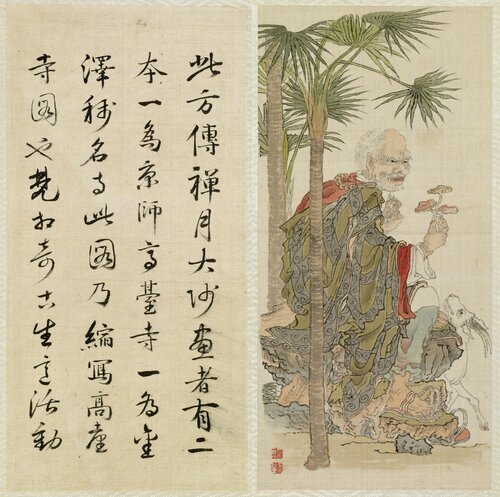 此方傳禪月大师畫者有二
本一為京師高臺寺一為金
澤稱名寺此圖乃縮寫高臺
寺圖也梵相奇古生意活動